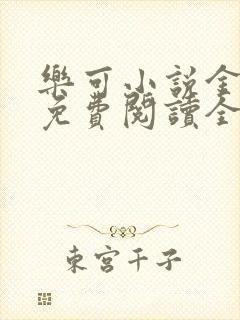 樂可小說金
免費閱讀全
東宮千子